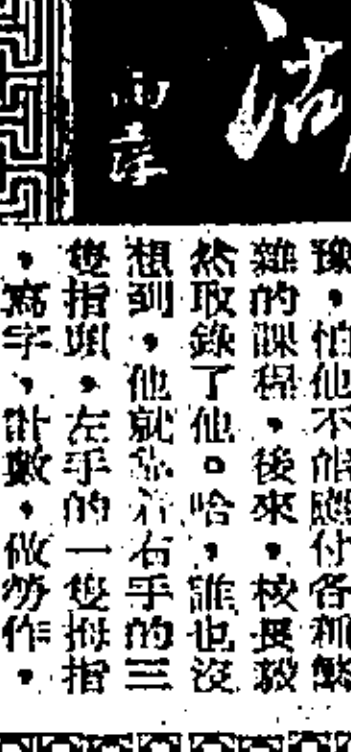 豫,怕他不能應付各種繁
雜的課程,後來,校長毅
然取錄了他。哈,誰也沒
想到,他就靠着右手的三
隻指頭,左手的一隻拇指
,寫字,計數,做勞作,